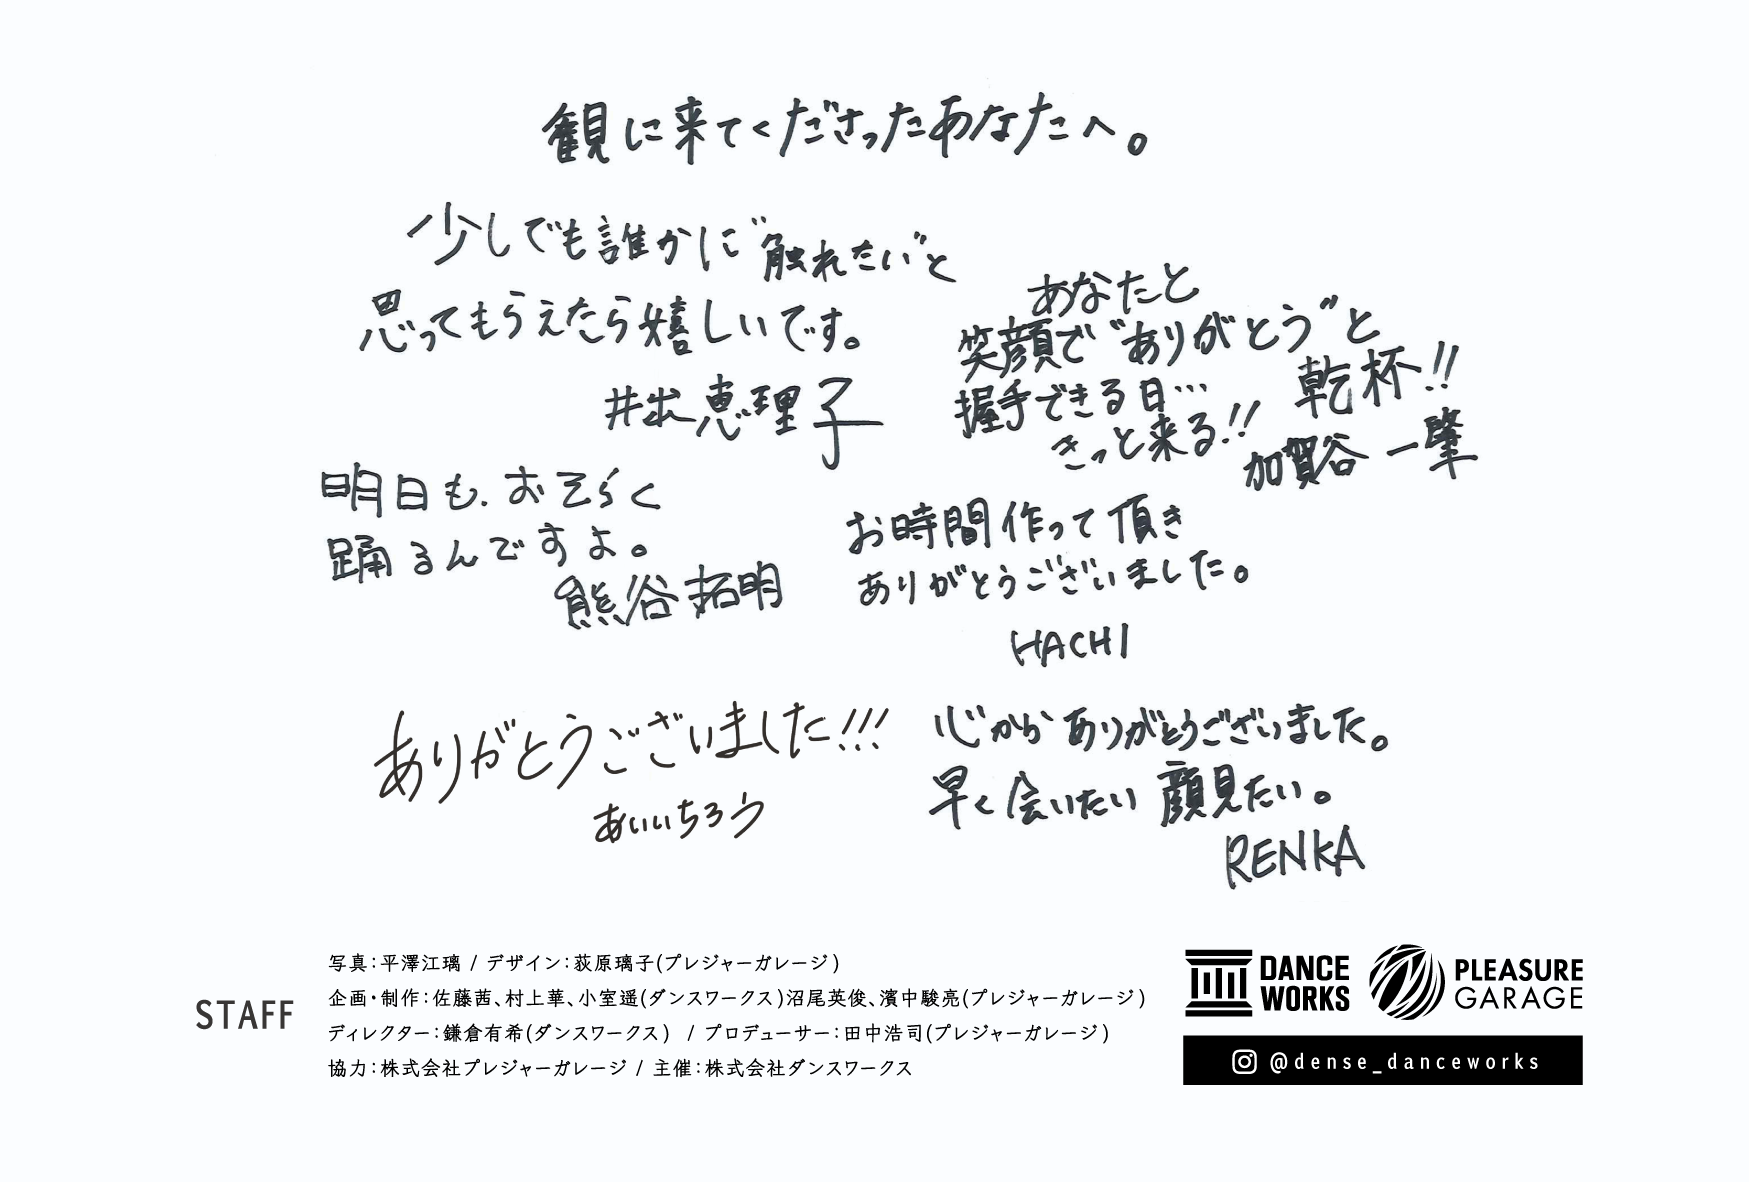 観に来てくださったあなたへ。
少しでも誰かに"触れたい"と
思ってもらえたら嬉しいです。
井出恵理子
あなたと
笑顔で"ありがとう"と
握手できる日…
きっと来る!!
乾杯!!
加賀谷一肇
明日も、おそらく
踊るんですよ。
熊谷拓明
お時間作って頂き
ありがとうございました。
HACHI
ありがとうございました!!!
あいいちろう
心からありがとうございました。
早く会いたい 顔見たい。
RENKA
STAFF
写真:平澤江璃 / デザイン:荻原璃子(プレジャーガレージ)
企画・制作:佐藤茜、村上華、小室遥(ダンスワークス)沼尾英俊、濱中駿亮(プレジャーガレージ)
ディレクター:鎌倉有希(ダンスワークス) / プロデューサー:田中浩司(プレジャーガレージ)
協力:株式会社プレジャーガレージ / 主催:株式会社ダンスワークス
DANCE WORKS
PLEASURE GARAGE
@dense_danceworks